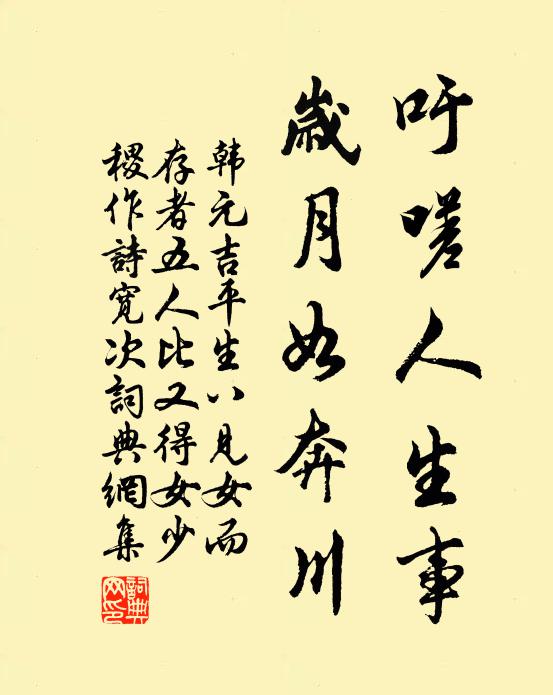 吁嗟人生事
歲月如奔川
韩元吉平生八見女而
存者五人比又得女少
稷作詩寬次詞典網集
詞典网印